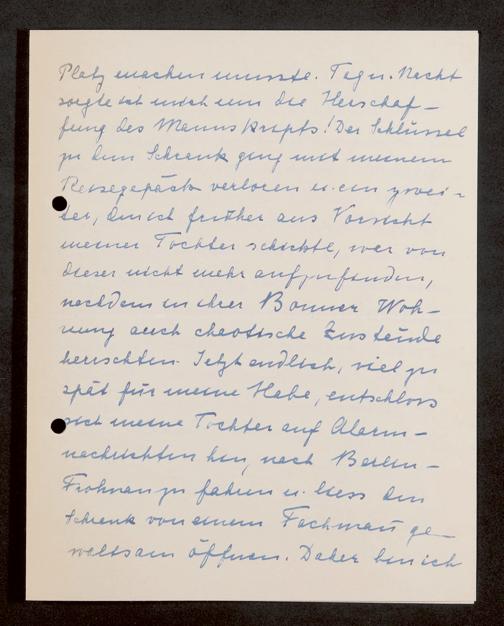 Platz machen musste. Tag u. Nacht
sorgte ich mich um die Herschaf-
fung des Manuskripts! Der Schlüssel
zu dem Schrank ging mit meinem
Reisegepäck verloren u. ein zwei-
ter, den ich früher aus Vorsicht
meiner Tochter schickte, war von
dieser nicht mehr aufzufinden,
nachdem in ihrer Bonner Woh-
nung auch chaotische Zustände
herrschten. Jetzt endlich, viel zu
spät für meine Habe, entschloss
sich meine Tochter auf Alarm-
nachrichten hin, nach Berlin-
Frohnau zu fahren u. liess den
Schrank von einem Fachmann ge-
waltsam öffnen. Daher bin ich